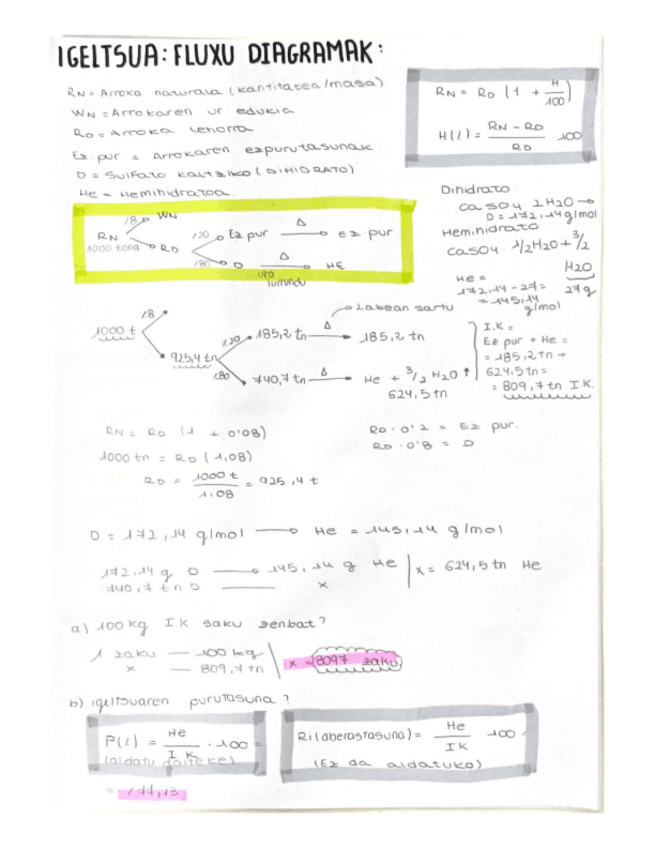 IGELTSUA: FLUXU DIAGRAMAK:
RN = Arroka naturala (kantitatea/masa)
WN = Arrokaren ur edukia
RD = Arroka lehorra
Ez.pur = Arrokaren ezpurutasunak
D = Sulfato kaltziko (DIHIDRATO)
He = Hemihidratoa
RN = RD (1 + H/100)
H(%) = RN - RD / RD · 100
%8 WN
RN
1000 tona
RD
%20 Ez pur Δ Ez pur
%80 D Δ HE
ura
lurrundu
Dihidrato:
CaSO4 2H2O →
D = 172,14 g/mol
Hemihidrato
CaSO4 1/2H2O + 3/2 H2O
He =
172,14 - 27 = 27g
= 145,14 g/mol
Labean sartu
%8
1000 t
925,4 tn
%20 185,2 tn Δ 185,2 tn
%80 740,7 tn Δ He + 3/2 H2O ↑
624,5 tn
I.K =
Ez pur + He =
= 185,2 tn +
624,5 tn =
= 809,7 tn I.K.
RN = RD (1 + 0'08)
1000 tn = RD (1,08)
RD = 1000 t / 1,08 = 925,4 t
RD · 0'2 = Ez pur.
RD · 0'8 = D
D = 172,14 g/mol → He = 145,14 g/mol
172,14 g D → 145,14 g He
740,7 tn D — x
x = 624,5 tn He
a) 100 kg I K saku zenbat?
1 zaku — 100 kg
x — 809,7 tn
x = 8097 zaku
b) igeltsuaren purutasuna?
P(%) = He / I K · 100 =
(aldatu daiteke)
= %77,13
R% (aberastasuna) = He / IK · 100
(Ez da aldatuko)